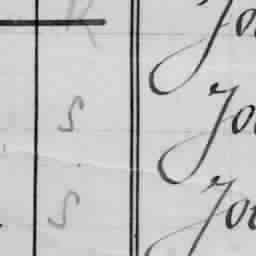 K Jo
S Jo
S Jo